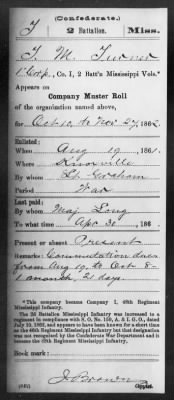 (Confederate.)
T 2 Battalion. Miss.
T. M. Turner
1" Corp, Co. I, 2 Batt'n Mississippi Vols.*
Appears on
Company Muster Roll
of the organization named above,
for Oct 10, to Nov 27, 1862.
Enlisted:
When Aug 19, 1861.
Where Knoxville
By whom Lt. Graham
Period War
Last paid:
By whom Maj. Long
To what time Apr 30, 186
Present or absent Present
Remarks: Commutation due
from Aug 19, to Oct 8-
1 month, 21 days.
*This company became Company I, 48th Regiment
Mississippi Infantry.
The 2d Battalion Mississippi Infantry was increased to a
regiment in compliance with S. O. No. 159, A. & I. G. O., dated
July 10, 1862, and appears to have been known for a short time
as the 48th Regiment Mississippi Infantry but that designation
was not recognized by the Confederate War Department and it became
the 48th Regiment Mississippi Infantry.
Book mark:
J. Brown
Copyist.